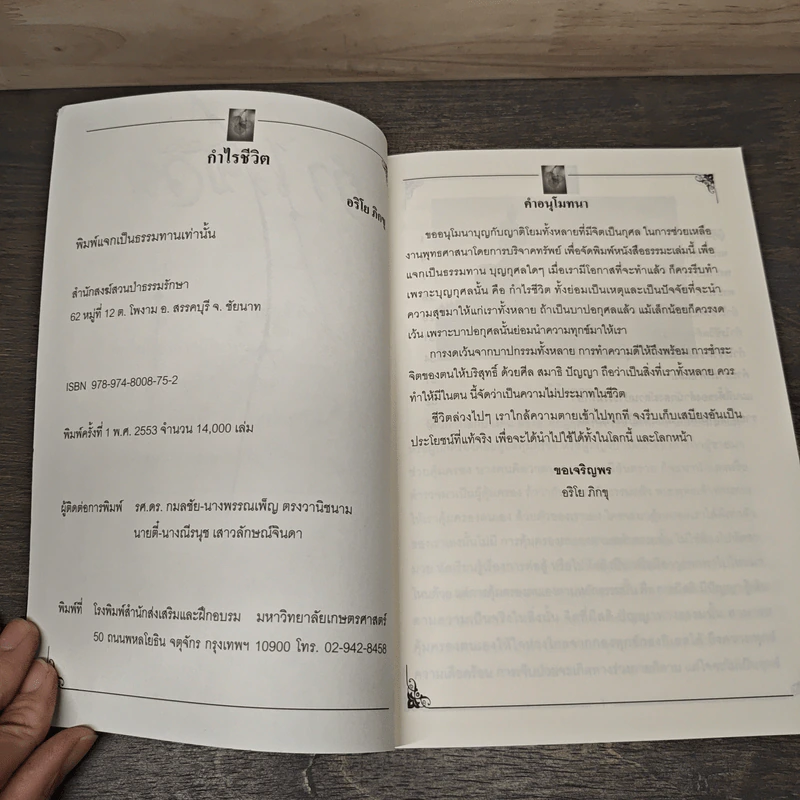 กำไรชีวิต
อริโย ภิกขุ
พิมพ์แจกเป็นธรรมทานเท่านั้น
สำนักสงฆ์สวนป่าธรรมรักษา
62 หมู่ที่ 12 ต. โพงาม อ. สรรคบุรี จ. ชัยนาท
ISBN 978-974-8008-75-2
พิมพ์ครั้งที่ 1 พ.ศ. 2553 จำนวน 14,000 เล่ม
ผู้ติดต่อการพิมพ์ รศ.ดร. กมลชัย-นางพรรณเพ็ญ ตรงวานิชนาม
นายตี๋-นางณีรนุช เสาวลักษณ์จินดา
พิมพ์ที่ โรงพิมพ์สำนักส่งเสริมและฝึกอบรม มหาวิทยาลัยเกษตรศาสตร์
50 ถนนพหลโยธิน จตุจักร กรุงเทพฯ 10900 โทร. 02-942-8458
คำอนุโมทนา
ขออนุโมนาบุญกับญาติโยมทั้งหลายที่มีจิตเป็นกุศล ในการช่วยเหลือ
งานพุทธศาสนาโดยการบริจาคทรัพย์ เพื่อจัดพิมพ์หนังสือธรรมะเล่มนี้ เพื่อ
แจกเป็นธรรมทาน บุญกุศลใดๆ เมื่อเรามีโอกาสที่จะทำแล้ว ก็ควรรีบทำ
เพราะบุญกุศลนั้น คือ กำไรชีวิต ทั้งย่อมเป็นเหตุและเป็นปัจจัยที่จะนำ
ความสุขมาให้แก่เราทั้งหลาย ถ้าเป็นบาปอกุศลแล้ว แม้เล็กน้อยก็ควรงด
เว้น เพราะบาปอกุศลนั้นย่อมนำความทุกข์มาให้เรา
การงดเว้นจากบาปกรรมทั้งหลาย การทำความดีให้ถึงพร้อม การชำระ
จิตของตนให้บริสุทธิ์ ด้วยศีล สมาธิ ปัญญา ถือว่าเป็นสิ่งที่เราทั้งหลาย ควร
ทำให้มีในตน นี้จัดว่าเป็นความไม่ประมาทในชีวิต
ชีวิตล่วงไปๆ เราใกล้ความตายเข้าไปทุกที จงรีบเก็บเสบียงอันเป็น
ประโยชน์ที่แท้จริง เพื่อจะได้นำไปใช้ได้ทั้งในโลกนี้ และโลกหน้า
ขอเจริญพร
อริโย ภิกขุ